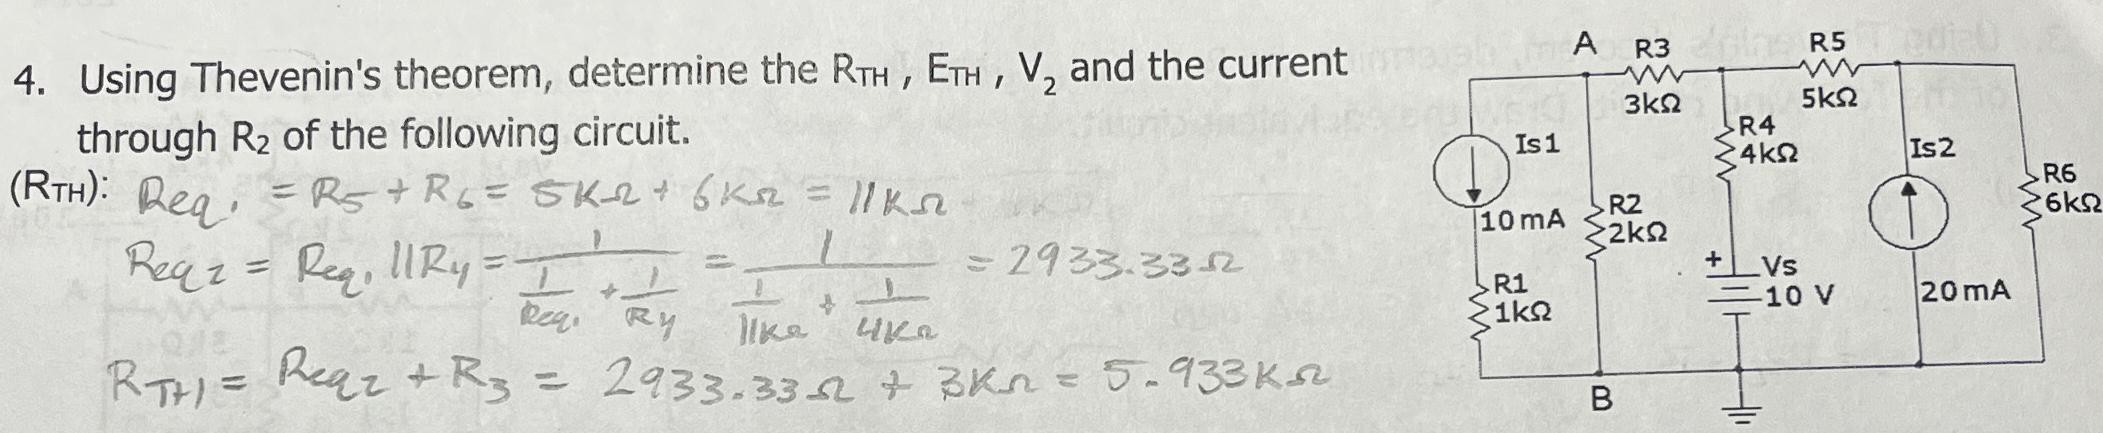 4. Using Thevenin's theorem, determine the RTH , ETH , V2 and the current
through R2 of the following circuit.
(RTH): Req1 = R5 + R6 = 5KΩ + 6KΩ = 11KΩ
Req2 = Req1 || R4 = 1 / (1/Req1 + 1/R4) = 1 / (1/11KΩ + 1/4KΩ) = 2933.33Ω
RTH1 = Req2 + R3 = 2933.33Ω + 3KΩ = 5.933KΩ
A
R3
3kΩ
R5
5kΩ
Is1
10 mA
R1
1kΩ
R2
2kΩ
R4
4kΩ
+
Vs
10 V
Is2
20 mA
R6
6kΩ
B